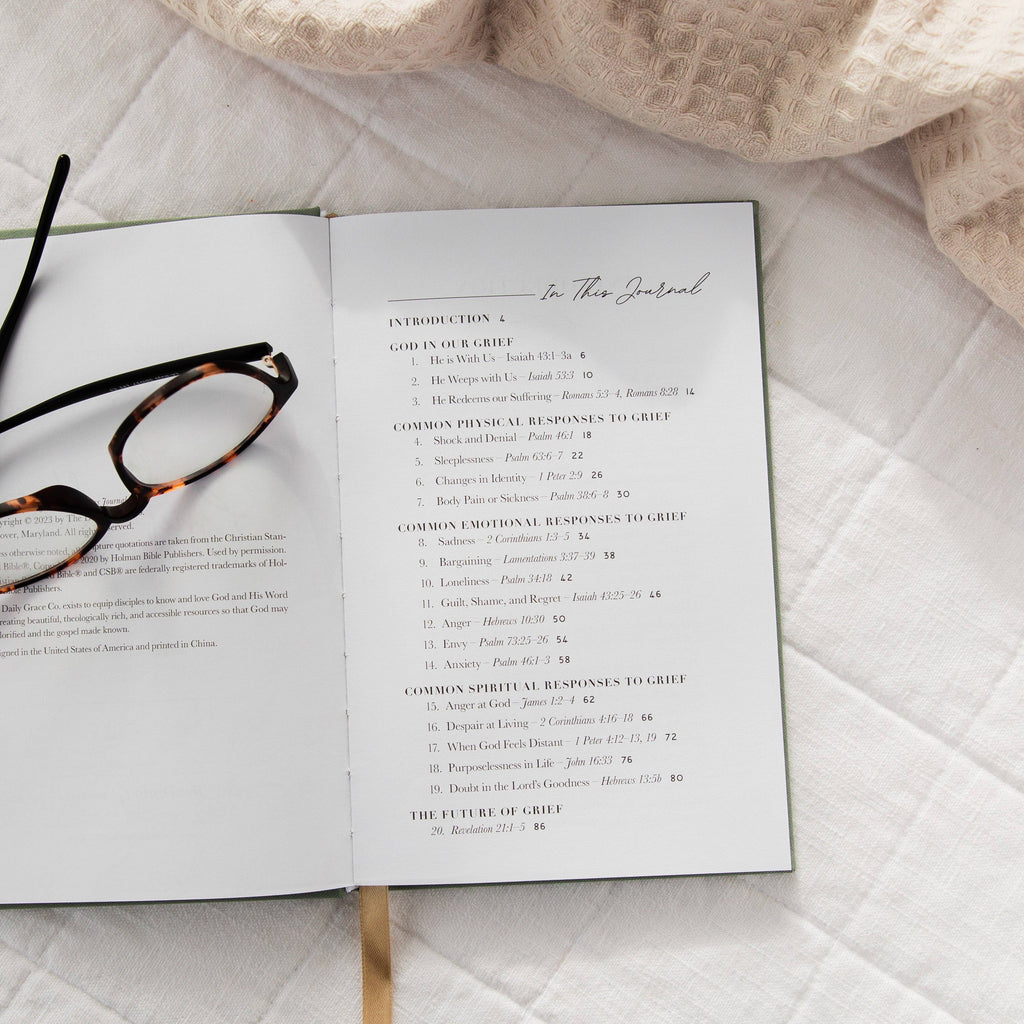 s Journa
yright © 2023 by The D
over, Maryland. All rights served.
ss otherwise noted, all pture quotations are taken from the Christian Stan-
Bible®, Cop 2020 by Holman Bible Publishers. Used by permission.
stian d Bible® and CSB® are federally registered trademarks of Hol-
Publishers.
Daily Grace Co. exists to equip disciples to know and love God and His Word
reating beautiful, theologically rich, and accessible resources so that God may
lorified and the gospel made known.
igned in the United States of America and printed in China.
In This Journal
INTRODUCTION 4
GOD IN OUR GRIEF
1. He is With Us – Isaiah 43:1–3a 6
2. He Weeps with Us – Isaiah 53:3 10
3. He Redeems our Suffering – Romans 5:3–4, Romans 8:28 14
COMMON PHYSICAL RESPONSES TO GRIEF
4. Shock and Denial – Psalm 46:1 18
5. Sleeplessness – Psalm 63:6–7 22
6. Changes in Identity – 1 Peter 2:9 26
7. Body Pain or Sickness – Psalm 38:6–8 30
COMMON EMOTIONAL RESPONSES TO GRIEF
8. Sadness – 2 Corinthians 1:3–5 34
9. Bargaining – Lamentations 3:37–39 38
10. Loneliness – Psalm 34:18 42
11. Guilt, Shame, and Regret – Isaiah 43:25–26 46
12. Anger – Hebrews 10:30 50
13. Envy – Psalm 73:25–26 54
14. Anxiety – Psalm 46:1–3 58
COMMON SPIRITUAL RESPONSES TO GRIEF
15. Anger at God – James 1:2–4 62
16. Despair at Living – 2 Corinthians 4:16–18 66
17. When God Feels Distant – 1 Peter 4:12–13, 19 72
18. Purposelessness in Life – John 16:33 76
19. Doubt in the Lord's Goodness – Hebrews 13:5b 80
THE FUTURE OF GRIEF
20. Revelation 21:1–5 86